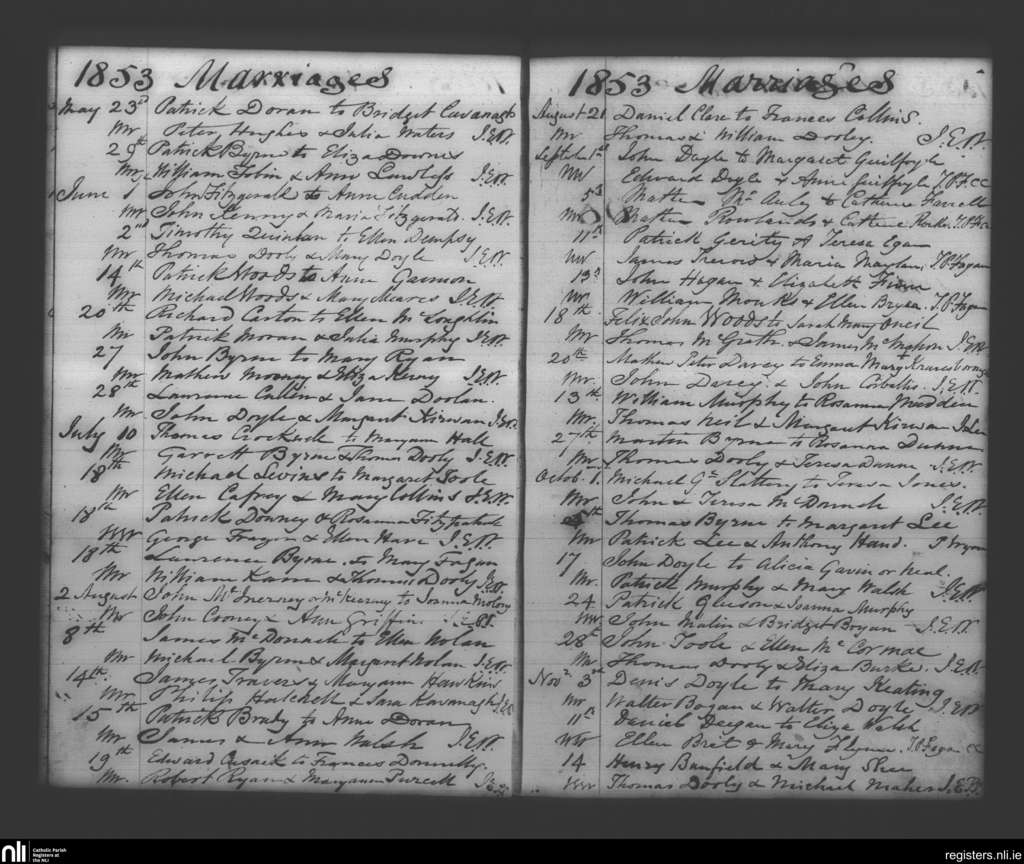 1853 Marriages
May 23d Patrick Doran to Bridget Cavanagh
Wit Peter Hughes & Julia Waters J.E.W.
29th Patrick Byrne to Eliza Downes
Wit William Tobin & Ann Lawless J.E.W.
June 1 John Fitzgerald to Anne Cudden
Wit John Kenny & Maria Fitzgerald. J.E.W.
2nd Timothy Quinlan to Ellen Dempsy
Wit Thomas Dooly & Mary Doyle J.E.W.
14th Patrick Woods to Anne Gannon
Wit Michael Woods & Mary Meares J.E.W.
20th Richard Carton to Ellen McLoughlin
Wit Patrick Moran & Julia Murphy J.E.W.
27 John Byrne to Mary Ryan
Wit Mathew Mooney & Eliza J.E.W.
28th Lawrence Cullen & Jane Doolan.
Wit John Doyle & Margaret Kirwan J.E.W.
July 10 Thomas to Maryann Hall
Wit Garrett Byrne & Thomas Dooly J.E.W.
18th Michael Levins to Margaret Toole
Wit Ellen Cafrey & Mary Collins J.E.W.
18th Patrick Downey & Rosanna Fitzpatrick
Wit George & Ellen Hare J.E.W.
18th Lawrence Byrne to Mary Fagan
Wit William Kane & Thomas Dooly J.E.W.
2 August John McInerney or McKearney to Joanna Molony
Wit John Cooney & Ann Griffin
8th James McDonach to Ellen Nolan
Wit Michael Byrne & Margaret Nolan J.E.W.
14th James Travers & Maryann Hawkins
Wit Philip Hatchell & Sara Kavanagh J.E.W.
15th Patrick Brady to Anne Doran
Wit James & Ann Walsh J.E.W.
19th Edward Cusack to Frances Donnelly.
Wit Robert Ryan & Maryann Purcell J.E.W.
1853 Marriages
August 21 Daniel Clare to Frances Collins.
Wit Thomas & William Dooley. J.E.W.
Septeb 1st John Doyle to Margaret Guilfoyle
Wit Edward Doyle & Anne Guilfoyle J.P.F. CC
5th Mathew McAuley to Catherine Farrell
Wit Mathew Rowlands & Catherine J.P.F. CC
11th Patrick Gerity & Teresa Egan
Wit James & Maria J.P. Fagan
13th John Hagan & Elizabeth
Wit William Monks & Ellen J.P. Fagan
18th Felix John Woods to Sarah Mary Oneil
Wit Thomas McGrath & James McMahon J.E.W.
20th Mathew Peter Darcy to Emma Mary
Wit John Darcy & John Corballis. J.E.W.
13th William Murphy to Rosanna Madden
Wit Thomas Neil & Margaret Kirwan
27th Martin Byrne to Rosanna Dunne
Wit Thomas Dooly & Teresa Dunne J.E.W.
Octob. 1. Michael Slattery to Teresa Jones.
Wit John & Teresa McDonach J.E.W.
5th Thomas Byrne to Margaret Lee
Wit Patrick Lee & Anthony Hand.
17 John Doyle to Alicia Gavin or Neal.
Wit Patrick Murphy & Mary Walsh J.E.W.
24 Patrick Gleeson & Joanna Murphy
Wit John Malin & Bridget Bogan J.E.W.
28th John Toole & Ellen McCormac
Wit Thomas Dooly & Eliza Burke. J.E.W.
Novr 3rd Denis Doyle to Mary Keating
Wit Walter Bogan & Walter Doyle J.E.W.
11th Daniel Deegan to Eliza Walsh
Wit Ellen Bret & Mary Flynn. J.P. Fagan CC
14 Henry Banfield & Mary Shee
Wit Thomas Dooly & Michael Maher J.E.W.
nli Catholic Parish
Registers at
the NLI
registers.nli.ie